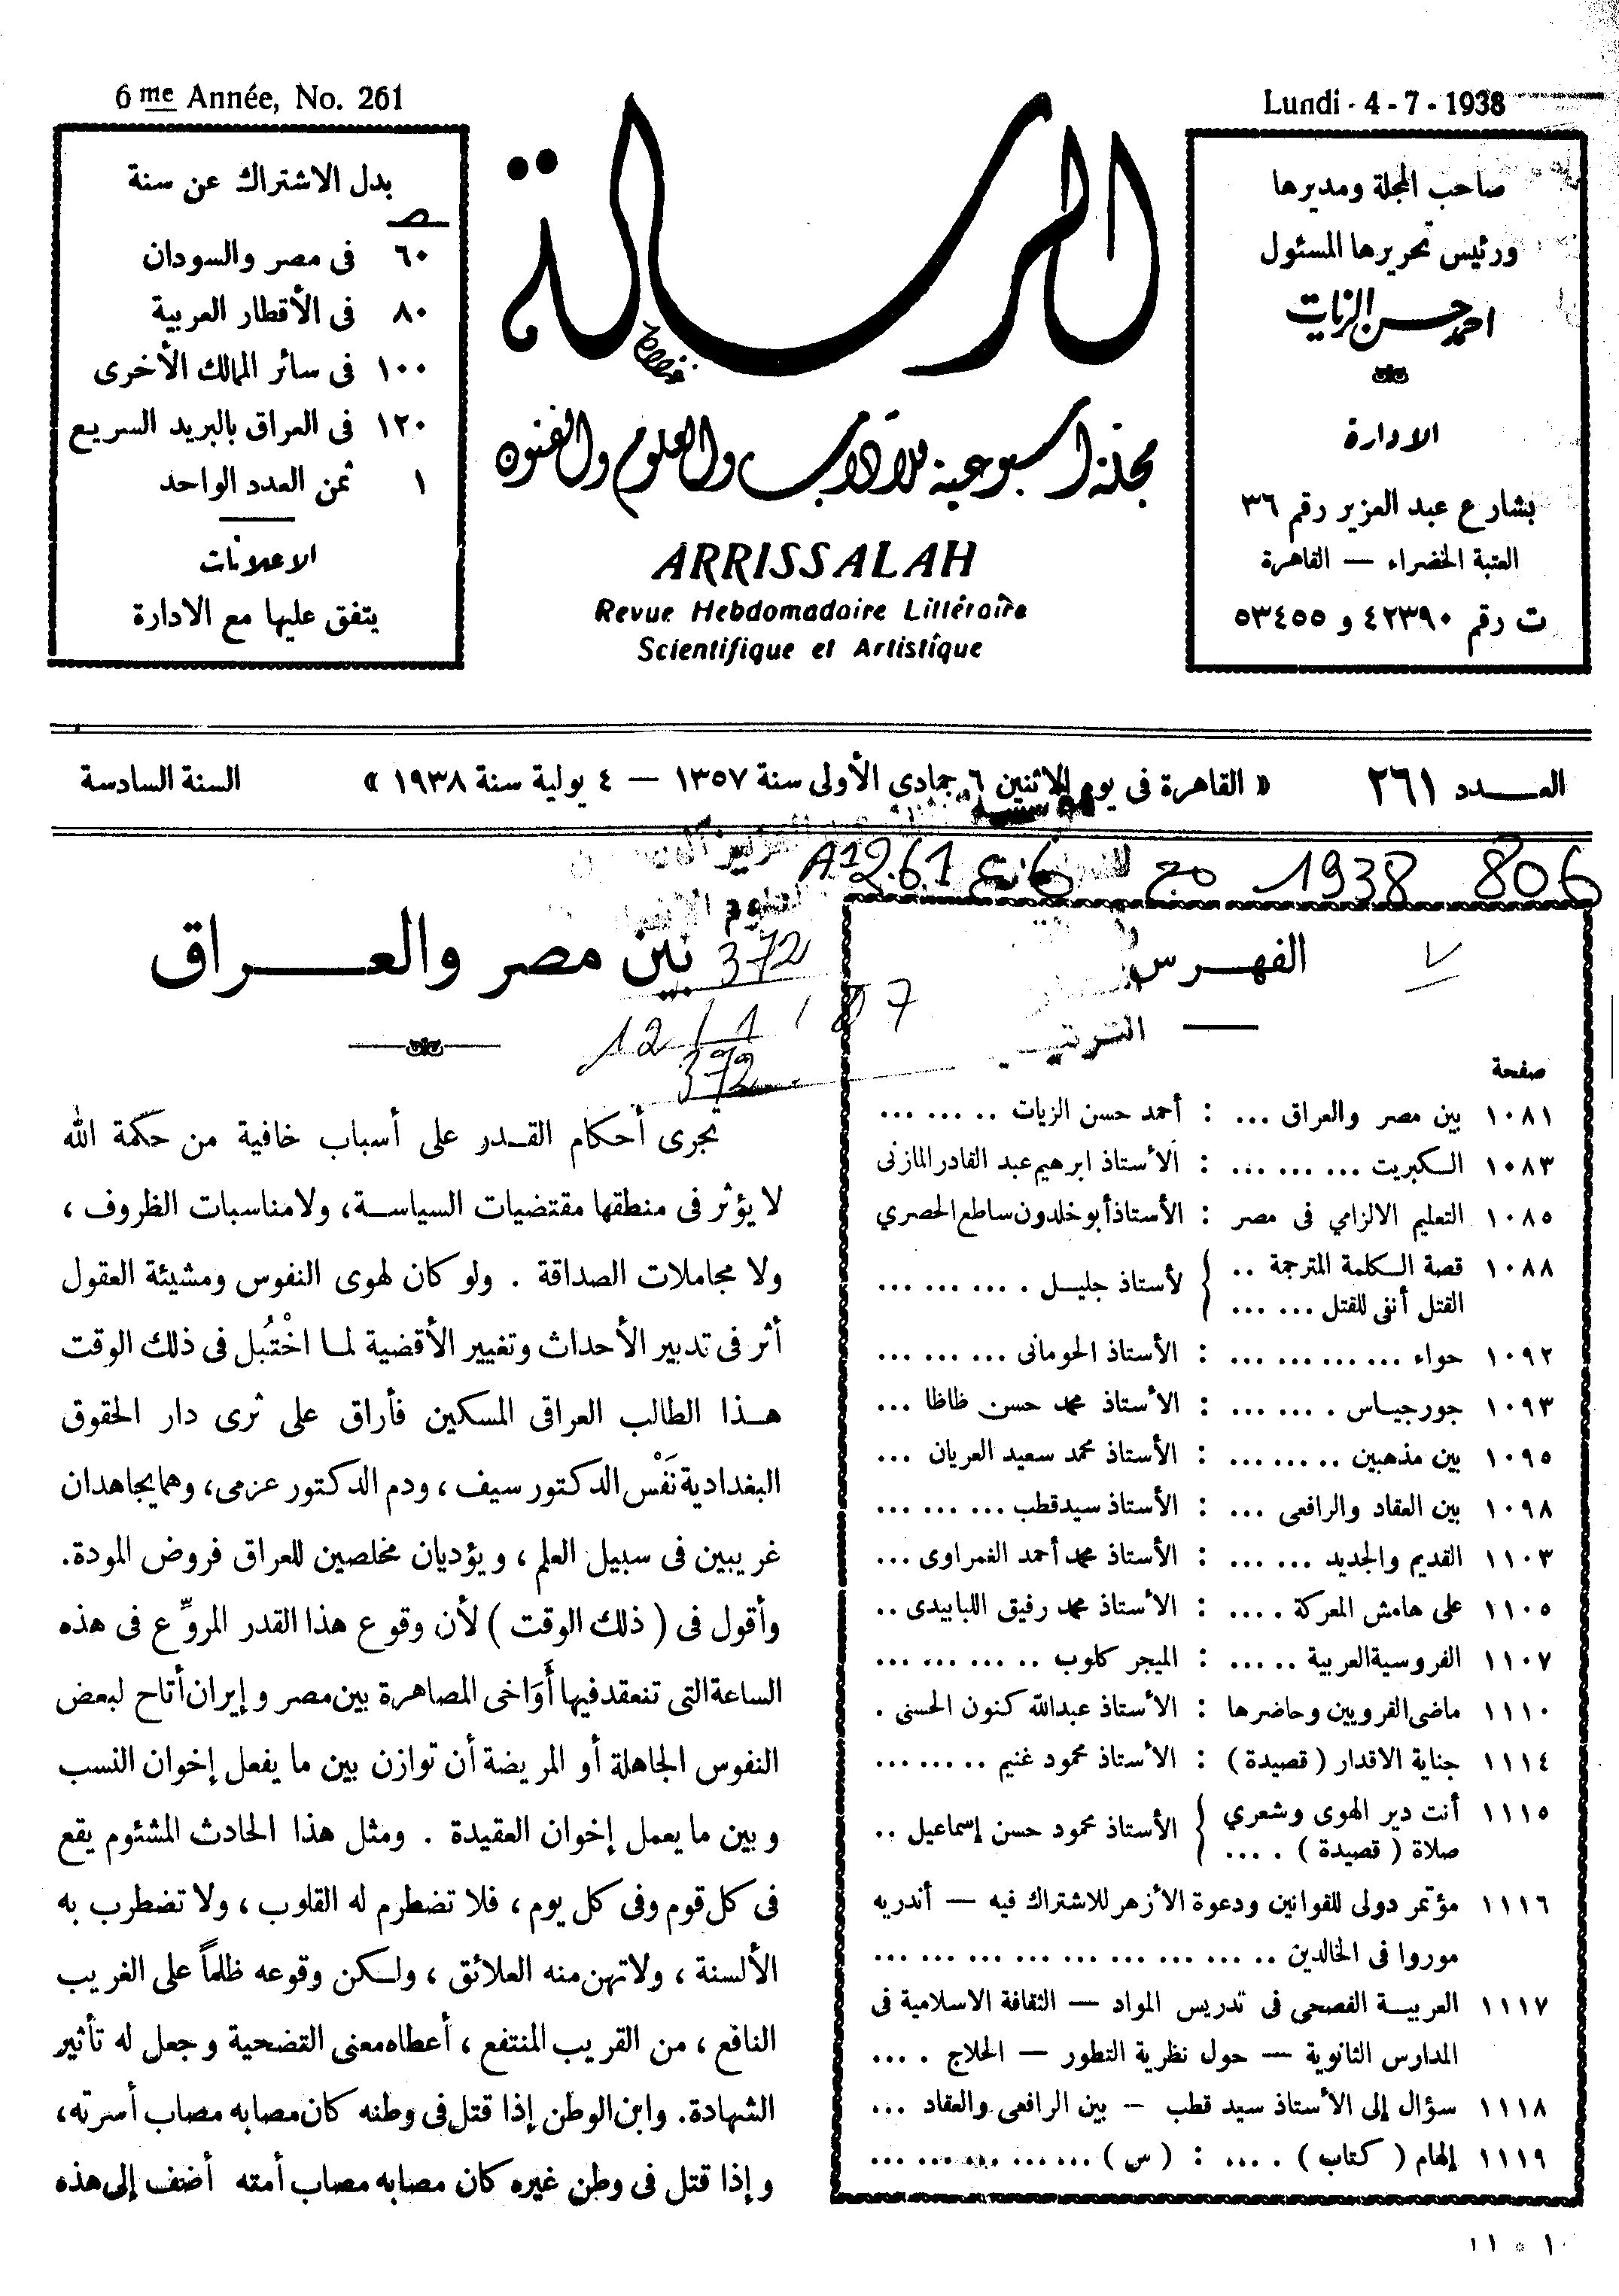 6me Année, No. 261
Lundi - 4 - 7 - 1938
صاحب المجلة ومديرها
ورئيس تحريرها المسئول
احمد حسن الزيات
الادارة
بشارع عبد العزيز رقم ٣٦
العتبة الخضراء — القاهرة
ت رقم ٤٢٣٩٠ و ٥٣٤٥٥
الرسالة
مجلة أسبوعية للآداب والعلوم والفنون
ARRISSALAH
Revue Hebdomadaire Littéraire
Scientifique et Artistique
بدل الاشتراك عن سنة
ص
٦٠ فى مصر والسودان
٨٠ فى الأقطار العربية
١٠٠ فى سائر الممالك الأخرى
١٢٠ فى العراق بالبريد السريع
١ ثمن العدد الواحد
الاعلانات
يتفق عليها مع الادارة
العـــدد ٢٦١ « القاهرة فى يوم الاثنين ٦ جمادى الأولى سنة ١٣٥٧ — ٤ يولية سنة ١٩٣٨ » السنة السادسة
806 1938 مج 6 ع A1261
الفهـــرس
صفحة
١٠٨١ بين مصر والعراق ... : أحمد حسن الزيات .. ... ...
١٠٨٣ الكبريت ... ... ... : الأستاذ ابرهيم عبد القادر المازنى
١٠٨٥ التعليم الالزامي فى مصر : الأستاذ أبو خلدون ساطع الحصري
١٠٨٨ قصة الكلمة المترجمة .. } لأستاذ جليل . ... ... ...
القتل أنفى للقتل ... ...
١٠٩٢ حواء ... ... ... ... : الأستاذ الحومانى ... ... ...
١٠٩٣ جورجياس . ... ... : الأستاذ محمد حسن ظاظا ...
١٠٩٥ بين مذهبين .. ... ... : الأستاذ محمد سعيد العريان ...
١٠٩٨ بين العقاد والرافعى ... : الأستاذ سيد قطب ... ... ...
١١٠٣ القديم والجديد ... ... : الأستاذ محمد أحمد الغمراوى ...
١١٠٥ على هامش المعركة . ... : الأستاذ محمد رفيق اللبابيدى ..
١١٠٧ الفروسية العربية .. ... : الميجر كلوب .. ... ... ...
١١١٠ ماضى القرويين وحاضرها : الأستاذ عبدالله كنون الحسنى .
١١١٤ جناية الاقدار ( قصيدة ) : الأستاذ محمود غنيم .. ... ...
١١١٥ أنت دير الهوى وشعري } الأستاذ محمود حسن إسماعيل ..
صلاة ( قصيدة ) . ...
١١١٦ مؤتمر دولى للقوانين ودعوة الأزهر للاشتراك فيه — أندريه
موروا فى الخالدين .. ... ... ... ... ... ... ...
١١١٧ العربية الفصحى فى تدريس المواد — الثقافة الاسلامية فى
المدارس الثانوية — حول نظرية التطور — الحلاج . ...
١١١٨ سؤال إلى الأستاذ سيد قطب — بين الرافعى والعقاد ...
١١١٩ إلهام ( كتاب ) . ... : ( س ) ... ... ... ... ...
بين مصر والعـــراق
372
12/1/87
372
تجرى أحكام القـدر على أسباب خافية من حكمة الله
لا يؤثر فى منطقها مقتضيات السياسـة، ولا مناسبات الظروف ،
ولا مجاملات الصداقة . ولو كان لهوى النفوس ومشيئة العقول
أثر فى تدبير الأحداث وتغيير الأقضية لمـا اخْتُبل فى ذلك الوقت
هـذا الطالب العراقى المسكين فأراق على ثرى دار الحقوق
البغدادية نَفْس الدكتور سيف ، ودم الدكتور عزمى، وهما يجاهدان
غريبين فى سبيل العلم ، ويؤديان مخلصين للعراق فروض المودة.
وأقول فى ( ذلك الوقت ) لأن وقوع هذا القدر المروِّع فى هذه
الساعة التى تنعقد فيها أَوَاخى المصاهرة بين مصر وإيران أتاح لبعض
النفوس الجاهلة أو المريضة أن توازن بين ما يفعل إخوان النسب
وبين ما يعمل إخوان العقيدة . ومثل هذا الحادث المشئوم يقع
فى كل قوم وفى كل يوم ، فلا تضطرم له القلوب ، ولا تضطرب به
الألسنة ، ولا تهن منه العلائق ، ولـكن وقوعه ظلماً على الغريب
النافع ، من القريب المنتفع ، أعطاه معنى التضحية وجعل له تأثير
الشهادة. وابن الوطن إذا قتل فى وطنه كان مصابه مصاب أسرته،
وإذا قتل فى وطن غيره كان مصابه مصاب أمته أضف إلى هذه